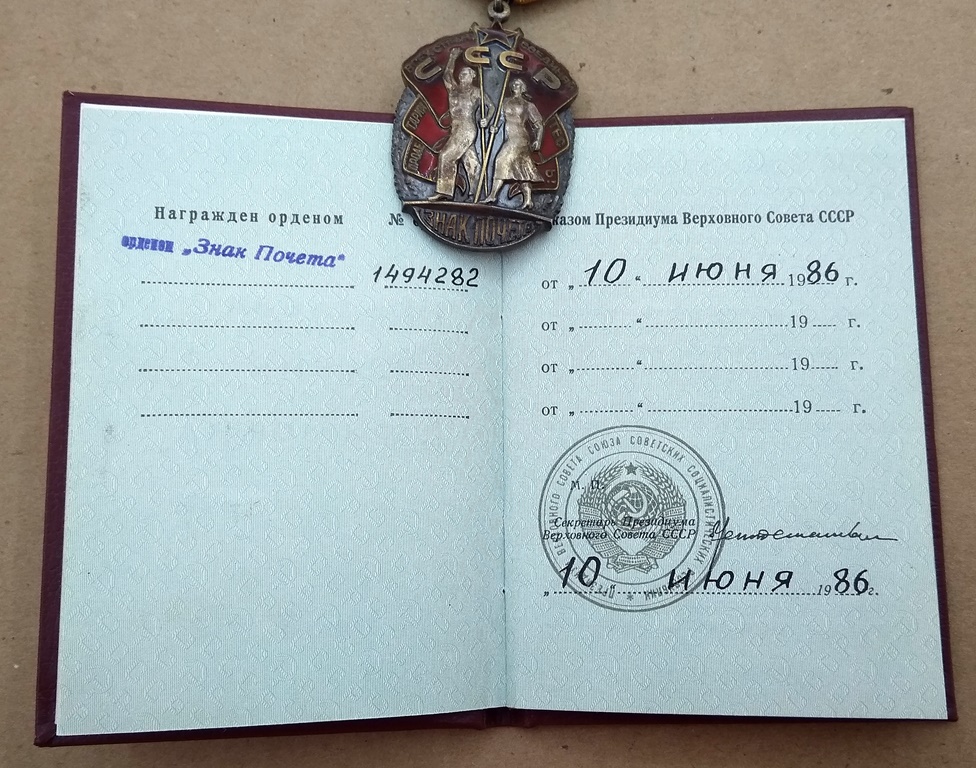 СССР
ЗНАК ПОЧЕТА
Награжден орденом №
орденом „Знак Почета“ 1494282
казом Президиума Верховного Совета СССР
от „ 10 “ июня 1986 г.
от „ “ 19 г.
от „ “ 19 г.
от „ “ 19 г.
ВЕРХОВНОГО СОВЕТА СОЮЗА СОВЕТСКИХ СОЦИАЛИСТИЧЕСКИХ
М. П.
Секретарь Президиума
Верховного Совета СССР
„ 10 “ июня 1986 г.